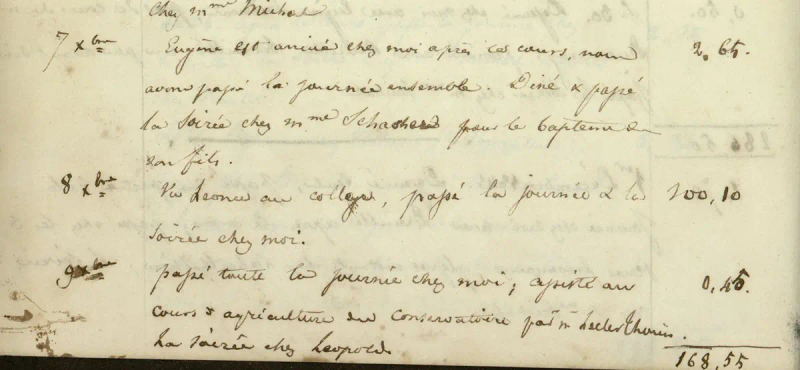 chez mme Michel
7 xbre Eugène est arrivé chez moi après les cours, nous 2.65.
avons passé la journée ensemble. Diné & passé
la soirée chez mme pour le bapteme de
son fils.
8 xbre Vu Leonce au college, passé la journée & la 100,10
soirée chez moi.
9 xbre passé toute la journée chez moi; assisté au 0,45.
cours d'agriculture du Conservatoire par mr Leclerc Thouin.
La soirée chez Leopold.
168,55